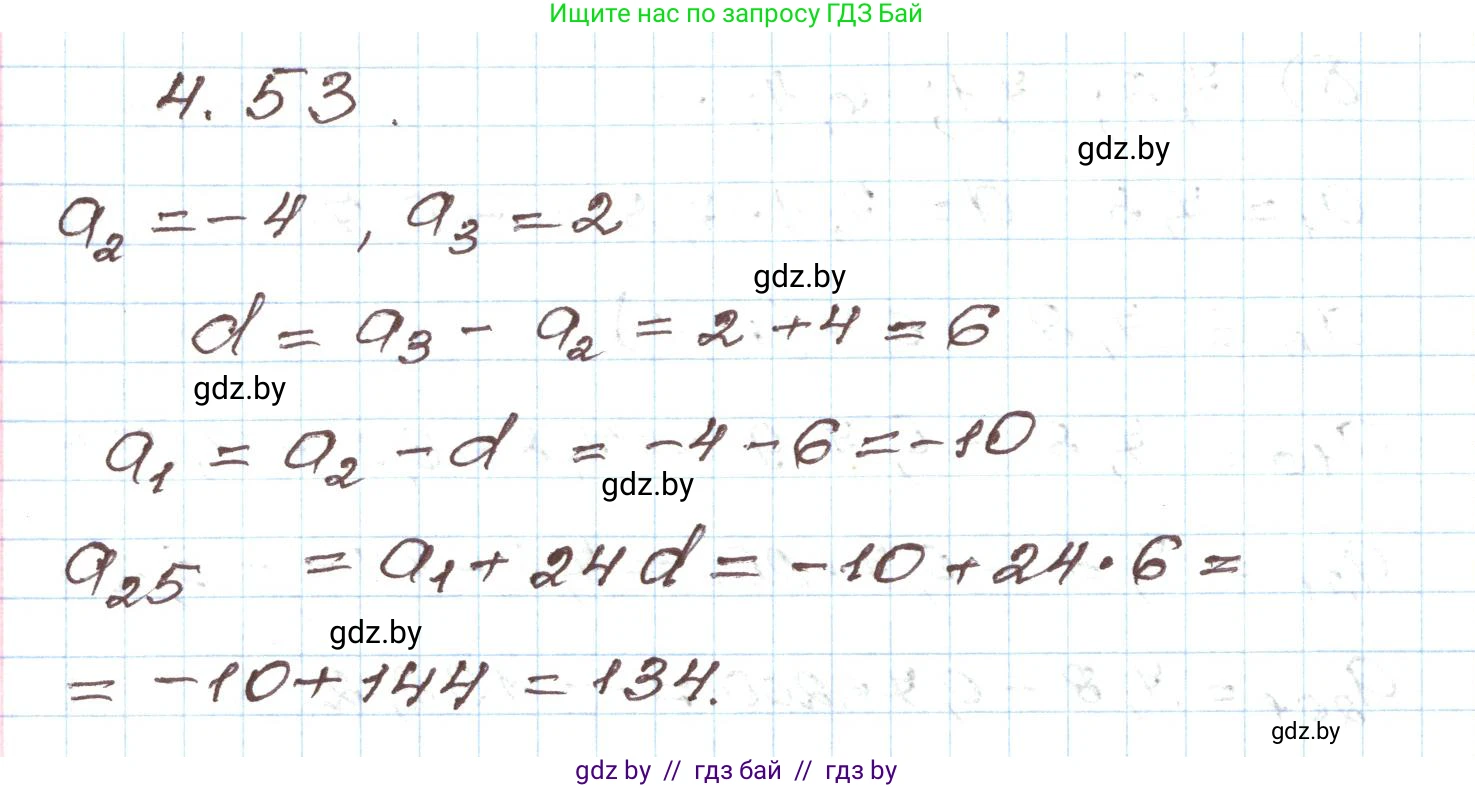 Ищите нас по запросу ГДЗ Бай
4.53.
gdz.by
a₂ = -4 , a₃ = 2
gdz.by
d = a₃ - a₂ = 2 + 4 = 6
gdz.by
a₁ = a₂ - d = -4 - 6 = -10
gdz.by
a₂₅ = a₁ + 24d = -10 + 24 · 6 =
gdz.by
= -10 + 144 = 134.
gdz.by
gdz by // гдз бай // гдз by